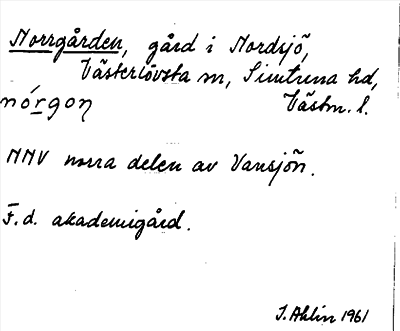 Norrgården, gård i Nordsjö,
Västerlövsta sn, Simtuna hd,
nórgoɳ Västm. l.
NNV norra delen av Vansjön.
F.d. akademigård.
I. Ahlin 1961